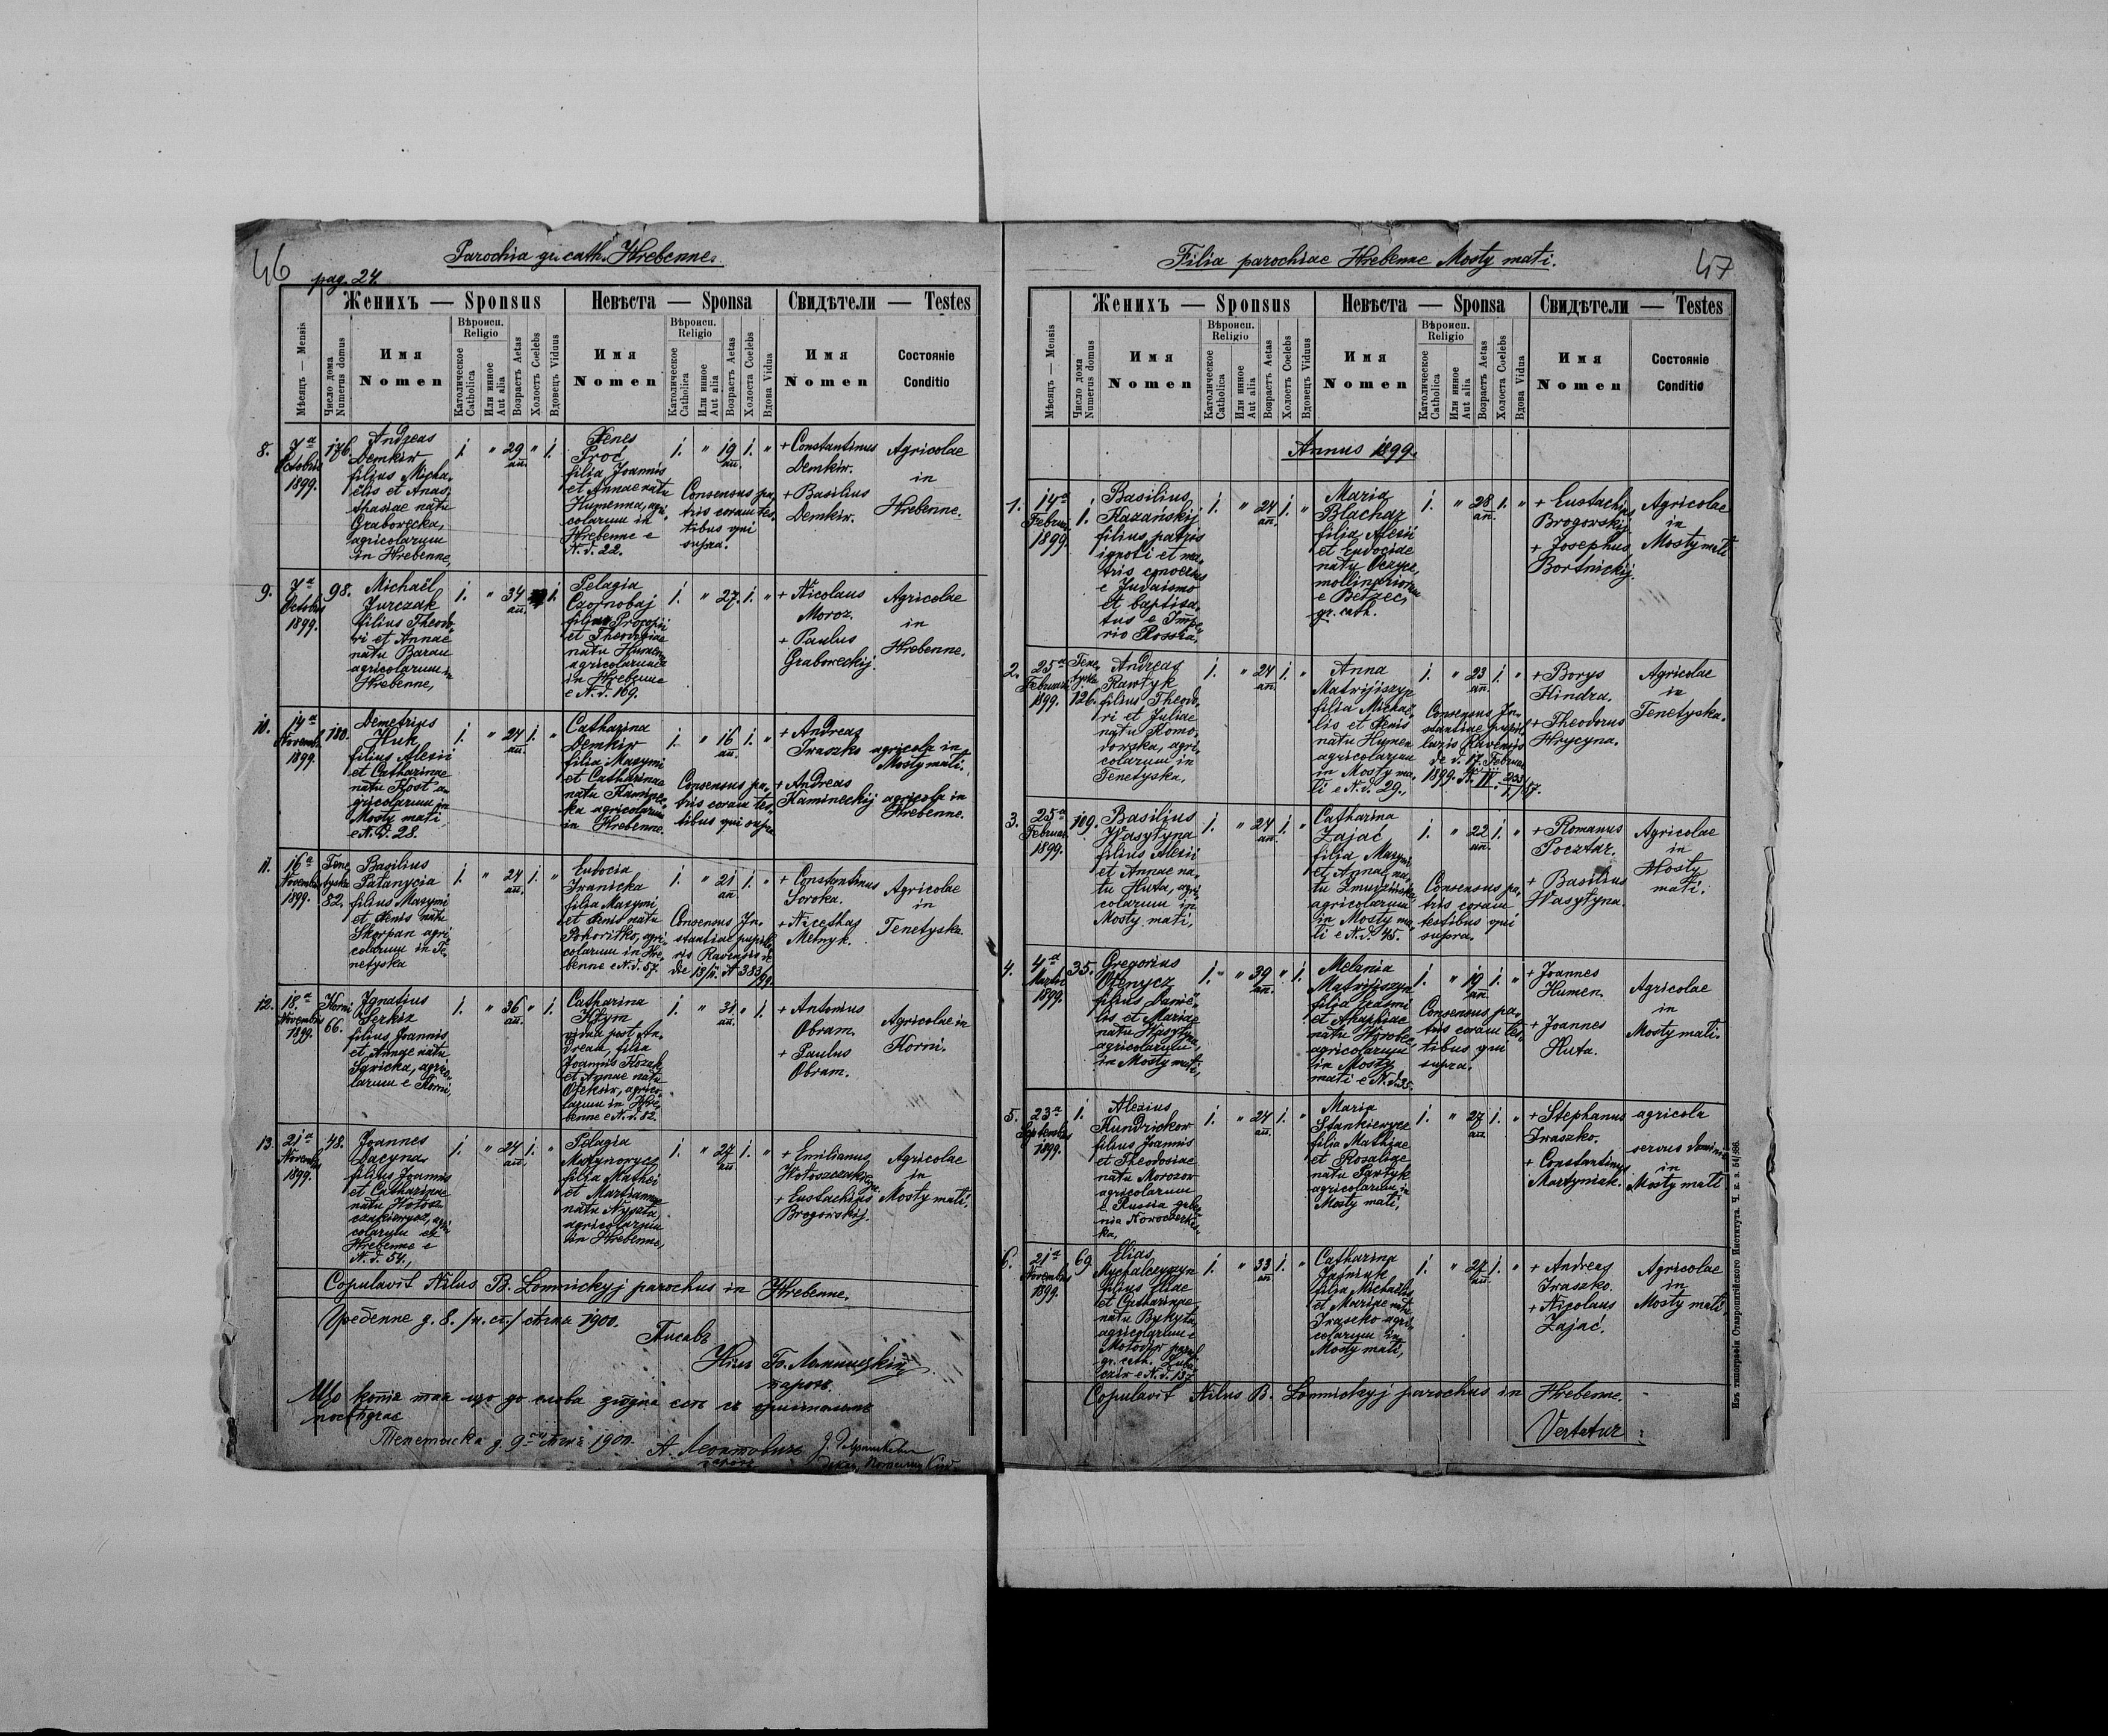 46
Parochia gr. cath. Hrebenne.
pag. 24.
Женихъ — Sponsus
Невѣста — Sponsa
Свидѣтели — Testes
Мѣсяцъ — Mensis
Число дома
Numerus domus
Имя
Nomen
Вѣроисп.
Religio
Католическое
Catholica
Или инное
Aut alia
Возрастъ Aetas
Холостъ Coelebs
Вдовецъ Viduus
Имя
Nomen
Вѣроисп.
Religio
Католическое
Catholica
Или инное
Aut alia
Возрастъ Aetas
Холоста Coelebs
Вдова Vidua
Имя
Nomen
Состояніе
Conditio
8.
7ª
Octobris
1899.
176.
Andreas
Demkiw
filius Micha-
ëlis et Anas-
thasiae natu
Graborecka,
agricolarum
in Hrebenne,
1.
"
29
añ.
"
1.
Xenes
Proc
filia Joannis
et Annae natu
Humenna, agri-
colarum in
Hrebenne e
N. d. 22.
1.
"
19
añ.
1.
"
Consensus pa-
tris coram tes-
tibus qui
supra.
+ Constantinus
Demkiw.
+ Basilius
Demkiw.
Agricolae
in
Hrebenne.
9.
7ª
Octobris
1899.
98.
Michaël
Jurczak
filius Theodo-
ri et Annae
natu Baran
agricolarum in
Hrebenne,
1.
"
34
añ.
1.
Pelagia
Czornobaj
filia Procopii
et Theodosiae
natu Humen
agricolarum
in Hrebenne
e N. d. 169.
1.
"
27.
1.
"
+ Nicolaus
Moroz.
+ Paulus
Graboreckij.
Agricolae
in
Hrebenne.
10.
14ª
Novemb.
1899.
180.
Demetrius
Huk,
filius Alexii
et Catharinae
natu Kost a-
gricolarum in
Mosty mati
e N. d. 28.
1.
"
24
añ.
1.
"
Catharina
Demkiw
filia Maxymi
et Catharinae
natu Kaminec-
ka agricolarum
in Hrebenne.
1.
"
16
añ.
1.
"
Consensus pa-
tris coram tes-
tibus qui supra
+ Andreas
Iwaszko
+ Andreas
Kamineckij
agricola in
Mosty mati.
agricola in
Hrebenne.
11.
16ª
Novembr.
1899.
Tene-
tyska
82.
Basilius
Patanycia
filius Maxymi
et Xenis natu
Skorpan agri-
colarum in Te-
netyska
1.
"
24
añ.
1.
"
Eudocia
Iwanicka
filia Maxymi
et Xenis natu
Pohoritko, agri-
colarum in Hre-
benne e N. d. 57.
1.
"
21
añ.
1.
"
Consensus In-
stantiae pupilla-
ris Ravensis de
+ Constantinus
Soroka.
+ Nicethas
Melnyk.
Agricolae
in
Tenetyska.
12.
18ª
Novembris
1899.
Korni
66.
Ignatius
Serkiz
filius Joannis
et Annae natu
Sawicka, agrico-
larum e Korni,
1.
"
36
añ.
"
1.
Catharina
Klym
vidua post An-
dream, filia
Joannis Kozak
et Annae natu
Oleksiw, agrico-
larum in Hre-
benne e N. d. 82.
1.
"
31
añ.
"
1.
+ Antonius
Obram.
+ Paulus
Obram.
Agricolae in
Korni.
13.
21ª
Novembr.
1899.
48.
Joannes
Dacyna
filius Joannis
et Catharinae
natu Hotosz-
czukiewycz, agri-
colarum ex
Hrebenne e
N. d. 54.,
1.
"
24
añ.
1.
"
Pelagia
Martynowycz
filia Mathei
et Martiannae
natu Nyszta,
agricolarum
in Hrebenne,
1.
"
27
añ
1.
"
+ Emilianus
+ Eustachius
Brogowskij.
Agricolae
in
Mosty mati.
Copulavit Nilus B. Lomnickyj parochus in Hrebenne.
Гребенне д. 8. /н. ст./ 1900.
Писавъ
Нілъ Б. Ломницкій
парох.
Що копія тая що до слова згодна есть съ оригиналомъ
посвѣдчає
Тенетиска д. 9. 1900.
парохъ
47
Filia parochiae Hrebenne Mosty mati.
Женихъ — Sponsus
Невѣста — Sponsa
Свидѣтели — Testes
Мѣсяцъ — Mensis
Число дома
Numerus domus
Имя
Nomen
Вѣроисп.
Religio
Католическое
Catholica
Или инное
Aut alia
Возрастъ Aetas
Холостъ Coelebs
Вдовецъ Viduus
Имя
Nomen
Вѣроисп.
Religio
Католическое
Catholica
Или инное
Aut alia
Возрастъ Aetas
Холоста Coelebs
Вдова Vidua
Имя
Nomen
Состояніе
Conditio
Annus 1899.
1.
14ª
Februar.
1899.
1.
Basilius
Kazańskij
filius patris
ignoti et ma-
tris conversus
e Judaismo
et baptisa-
tus e Impe-
rio Rossia,
1.
"
24
añ.
1.
"
Maria
Blachar
filia Alexii
et Eudociae
natu Oczyc,
mollinariorum
e Betzec,
gr. cath.
1.
"
28
añ.
1.
"
+ Eustachius
Brogowskij
+ Josephus
Bortnickij.
Agricolae
in
Mosty mati
2.
25ª
Februar.
1899.
Tene-
tyska
126.
Andreas
Pawtyk
filius Theodo-
ri et Juliae
natu Romo-
dowska, agri-
colarum in
Tenetyska,
1.
"
24
añ.
1.
"
Anna
Matwijiszyn
filia Michaë-
lis et Xenis
natu Humen
agricolarum
in Mosty ma-
ti e N. d. 29.,
1.
"
23
añ.
1.
"
Consensus In-
stantiae pupil-
laris Ravensis
de d. 17. Februar.
1899. N. IV.
+ Borys
Hindra.
+ Theodorus
Hrycyna.
Agricolae
in
Tenetyska.
3.
25ª
Februar.
1899.
109.
Basilius
Wasytyna
filius Alexii
et Annae na-
tu Huta, agri-
colarum in
Mosty mati,
1.
"
24
añ.
1.
"
Catharina
Zajać
filia Maxymi
et Annae na-
tu Zmurzińska,
agricolarum
in Mosty ma-
ti e N. d. 45.
1.
"
22
añ.
1.
"
Consensus pa-
tris coram
testibus qui
supra.
+ Romanus
Pocztar.
+ Basilius
Wasytyna.
Agricolae
in
Mosty
mati.
4.
4ª
Martii
1899.
35.
Gregorius
Olenycz
filius Danië-
lis et Mariae
natu Wasytyna,
agricolarum
in Mosty mati,
1.
"
39
añ.
"
1.
Melania
Matwijiszyn
filia Erasmi
et Ahaphiae
natu Wyrobec
agricolarum
in Mosty
mati e N. d. 35.
1.
"
19
añ.
1.
"
Consensus pa-
tris coram tes-
tibus qui
supra.
+ Joannes
Humen.
+ Joannes
Huta.
Agricolae
in
Mosty mati.
5.
23ª
Septembris
1899.
1.
Alexius
Kundrickow
filius Joannis
et Theodosiae
natu Morozow
agricolarum
e Russia guber-
nia Nowoczerkas-
ka,
1.
"
24
añ.
1.
"
Maria
Stankiewycz
filia Mathiae
et Rosaliae
natu Pawtyk
agricolarum in
Mosty mati,
1.
"
27
añ
1.
"
+ Stephanus
Iwaszko.
+ Constantinus
Martyniak.
agricola
servus dominii
in
Mosty mati
6.
21ª
Novembris
1899.
69.
Elias
Mychalczyszyn
filius Eliae
et Catharinae
natu Bykyta,
agricolarum e
gr. cath.
e N. d. 137.
1.
"
33
añ
1.
"
Catharina
filia Michaëlis
et Mariae natu
Iwaszko agri-
colarum in
Mosty mati,
1.
"
27
añ.
1.
"
+ Andreas
Iwaszko.
+ Nicolaus
Zajać.
Agricolae
in
Mosty mati
Copulavit Nilus B. Lomnickyj parochus in Hrebenne.
Vertatur:
Изъ типографіи Ставропигійского Института. Ч. к. з. 54/886.